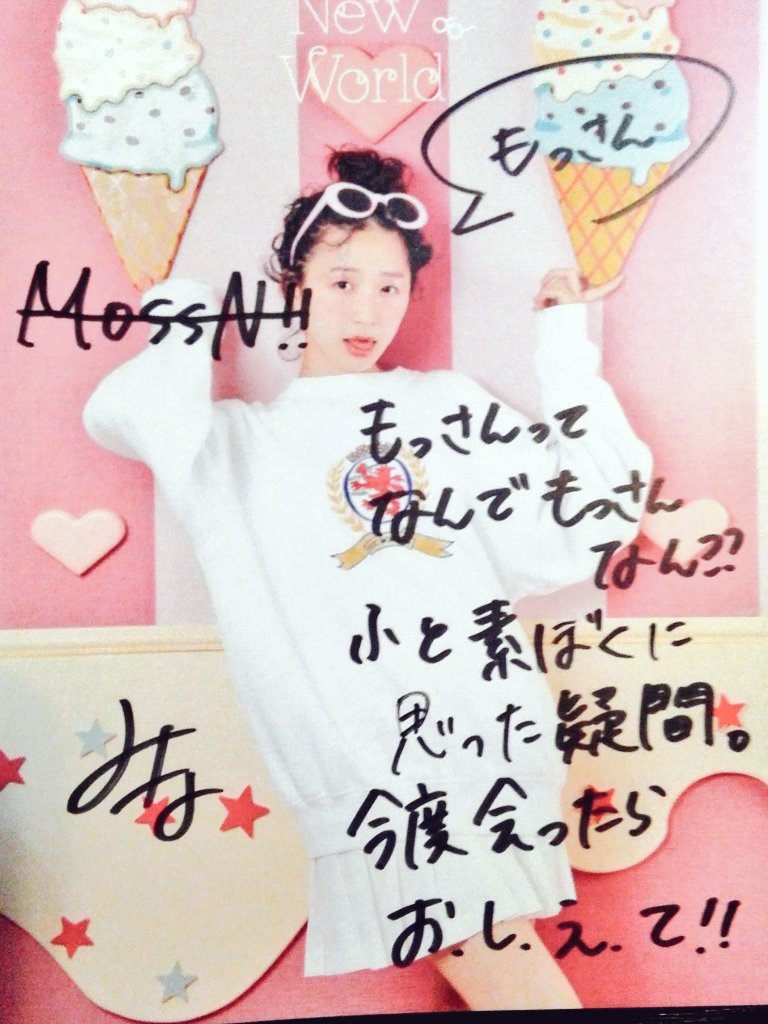 New
World
もっさん
MossN!!
もっさんって
なんでもっさん
なん??
ふと素ぼくに
思った疑問。
今度会ったら
お.し.え.て!!
みな